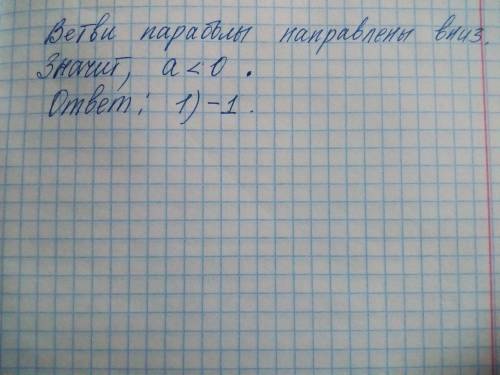 Ветви параболы направлены вниз.
Значит, a < 0 .
Ответ: 1) -1 .